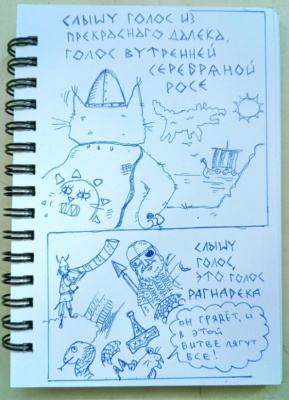 СЛЫШУ ГОЛОС ИЗ
ПРЕКРАСНАГО ДАЛЕКА,
ГОЛОС В УТРЕННЕЙ
СЕРЕБРЯНОЙ
РОСЕ
СЛЫШУ
ГОЛОС,
ЭТО ГОЛОС
РАГНАРЕКА
ОН ГРЯДЁТ, И
В ЭТОЙ
БИТВЕ ЛЯГУТ
ВСЕ!